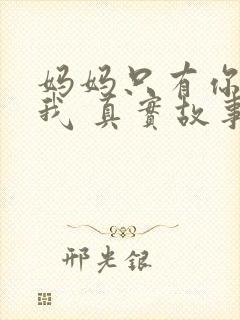 妈妈只有你
我 真實故事
邢光銀